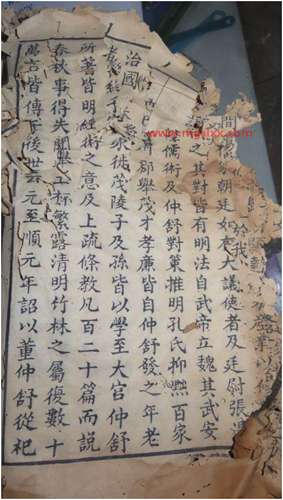 於我
朝廷如有大議使者及廷尉張
之其對皆有明法自武帝立魏其武安
儒術及仲舒對策推明孔氏抑黜百家
治國
郡舉茂才孝廉皆自仲舒發之年老
終于
徙茂陵子及孫皆以學至大官仲舒
所著皆明經術之意及上疏條教凡百二十篇而說
春秋事得失聞舉玉杯繁露清明竹林之屬復數十
萬言皆傳於後世云元至順元年詔以董仲舒從祀